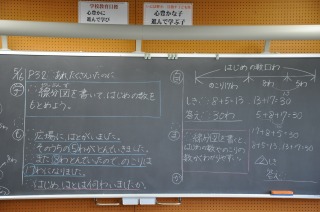 学校教育目標
心豊かに
進んで学び
心豊かな子
進んで学ぶ子
5/6 P32 あれ、たくさんいたのに。
め
線分図を書いて、はじめの数を
もとめよう。
も
広場に、はとがいました。
そのうちの5わがとんでいきました。
また8わとんでいったので、のこりは
17わになりました。
はじめ、はとは何わいましたか。
はじめの数□わ
のこり17わ
8わ
5わ
しき: 8+5=13 13+17=30
答え: 30わ 5+8+17=30
ま
線分図を書くと、
はじめの数やのこりの
数がわかりやすい。
17+8+5=30
13+17=30